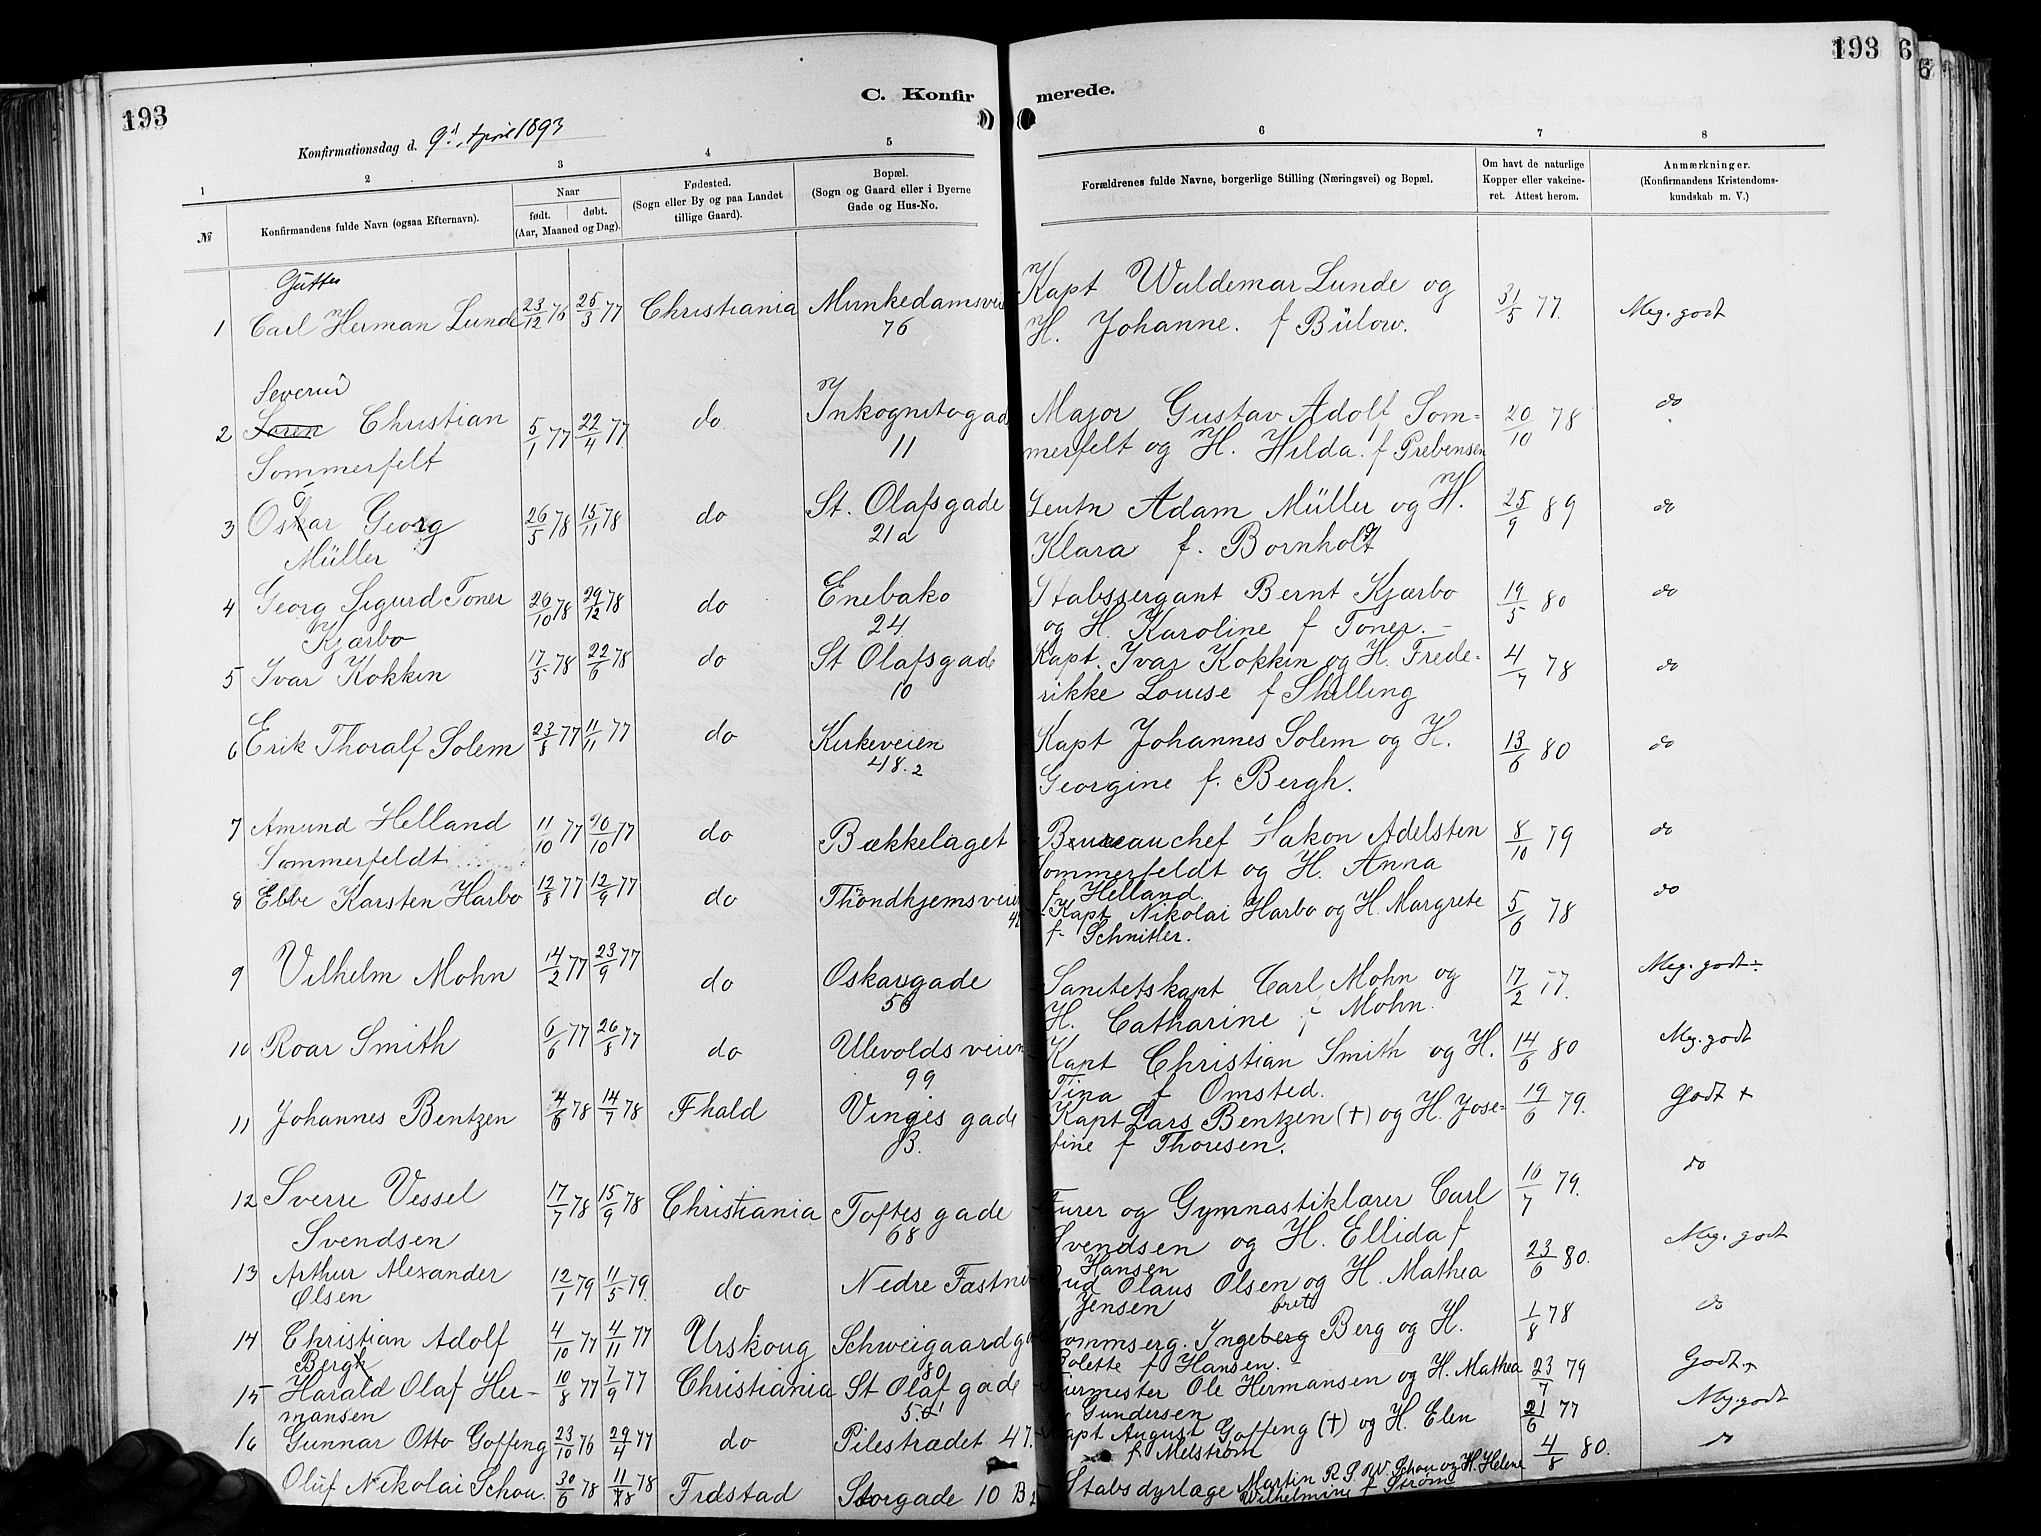 193
193 6
6
C. Konfir merede.
Konfirmationsdag d. 9d. April 1893
1 2 3 4 5 6 7 8
№
Konfirmandens fulde Navn (ogsaa Efternavn).
Naar
født. døbt.
(Aar, Maaned og Dag).
Fødested.
(Sogn eller By og paa Landet
tillige Gaard).
Bopæl.
(Sogn og Gaard eller i Byerne
Gade og Hus-No.
Forældrenes fulde Navne, borgerlige Stilling (Næringsvei) og Bopæl.
Om havt de naturlige
Kopper eller vakcine-
ret. Attest herom.
Anmærkninger.
(Konfirmandens Kristendoms-
kundskab m. V.)
Gutter
1 Carl Herman Lunde 23/12 76 25/3 77 Christiania Munkedamsvei
76
Kapt Waldemar Lunde og
H. Johanne. f Bülow.
31/5 77. Meg. godt
Severin
2 Søren Christian 5/1 77 22/4 77 do Inkognitogad
Sommerfelt
11
Major Gustav Adolf Som-
merfelt og H. Hilda. f Prebensen
20/10 78 do
3 Oskar Georg 26/5 78 15/11 78 do St. Olafsgade
Müller
21a
Leutn Adam Müller og H.
Klara f. Bornholdt
25/9 89 do
4 Georg Sigurd Toner 26/10 78 29/12 78 do Enebakv
Kjærbo
24
Stabssergant Bernt Kjærbo
og H. Karoline f Toner. –
19/5 80 do
5 Ivar Kokkin 17/5 78 22/6 78 do St Olafsgade
10
Kapt. Ivar Kokkin og H. Frede-
rikke Louise f Skilling
4/7 78 do
6 Erik Thoralf Solem 23/8 77 11/11 77 do Kirkeveien
48.2
Kapt Johannes Solem og H.
Georgine f. Bergh.
13/6 80 do
7 Amund Helland 11/10 77 10/10 77 do Bækkelaget
Sommerfeldt
Bureauchef Hakon Adelsten
Sommerfeldt og H. Anna
f Helland.
8/10 79 do
8 Ebbe Karsten Harbo 12/8 77 12/9 77 do Throndhjemsvei
Kapt Nikolai Harbo og H. Margrete
f Schnitler.
5/6 78 do
9 Vilhelm Mohn 14/2 77 23/9 77 do Oskarsgade
56
Sanitetskapt Carl Mohn og
H. Catharine f Mohn.
17/2 77. Meg. godt ÷
10 Roar Smith 6/6 77 26/8 77 do Ulevoldsveien
99
Kapt Christian Smith og H.
Tina f Omsted.
14/6 80 Meg. godt
11 Johannes Bentzen 4/6 78 14/7 78 Fhald Vinges gade
B.
Kapt Lars Bentzen (†) og H. Jose-
fine f Thoresen.
19/6 79. Godt +
12 Sverre Vessel 17/7 78 15/9 78 Christiania Toftes gade
Svendsen
68
Furer og Gymnastiklærer Carl
Svendsen og H. Ellida f
Hansen
16/7 79. do
13 Arthur Alexander 12/1 79 11/5 79. do Nedre Fastn
Olsen
Olaus Olsen og H. Mathea
Jensen
23/6 80. Meg. godt
14 Christian Adolf 4/10 77 4/11 77 Urskoug Schweigaardga
Bergh
80
Kommserg. Ingeberg Berg og H.
bret
Bolette f Hansen. –
1/8 78 do
15 Harald Olaf Her- 10/8 77 7/9 77 Christiania St Olaf gade
mansen
5.
Ole Hermansen og H. Mathea
Gundersen
23/7 79 Godt +
16 Gunnar Otto Goffeng 23/10 76 29/4 77 do Pilestrædet 47.
Kapt August Goffeng (†) og H. Elen
f Melstrøm
21/6 77 Meg. godt
Oluf Nikolai Schou. 30/6 78 11/8 78 Frdstad Storgade 10 B
Stabsdyrlæge Martin R. S. W. Schou og H. Helene
Wilhelmine f Strøm
4/8 80. do